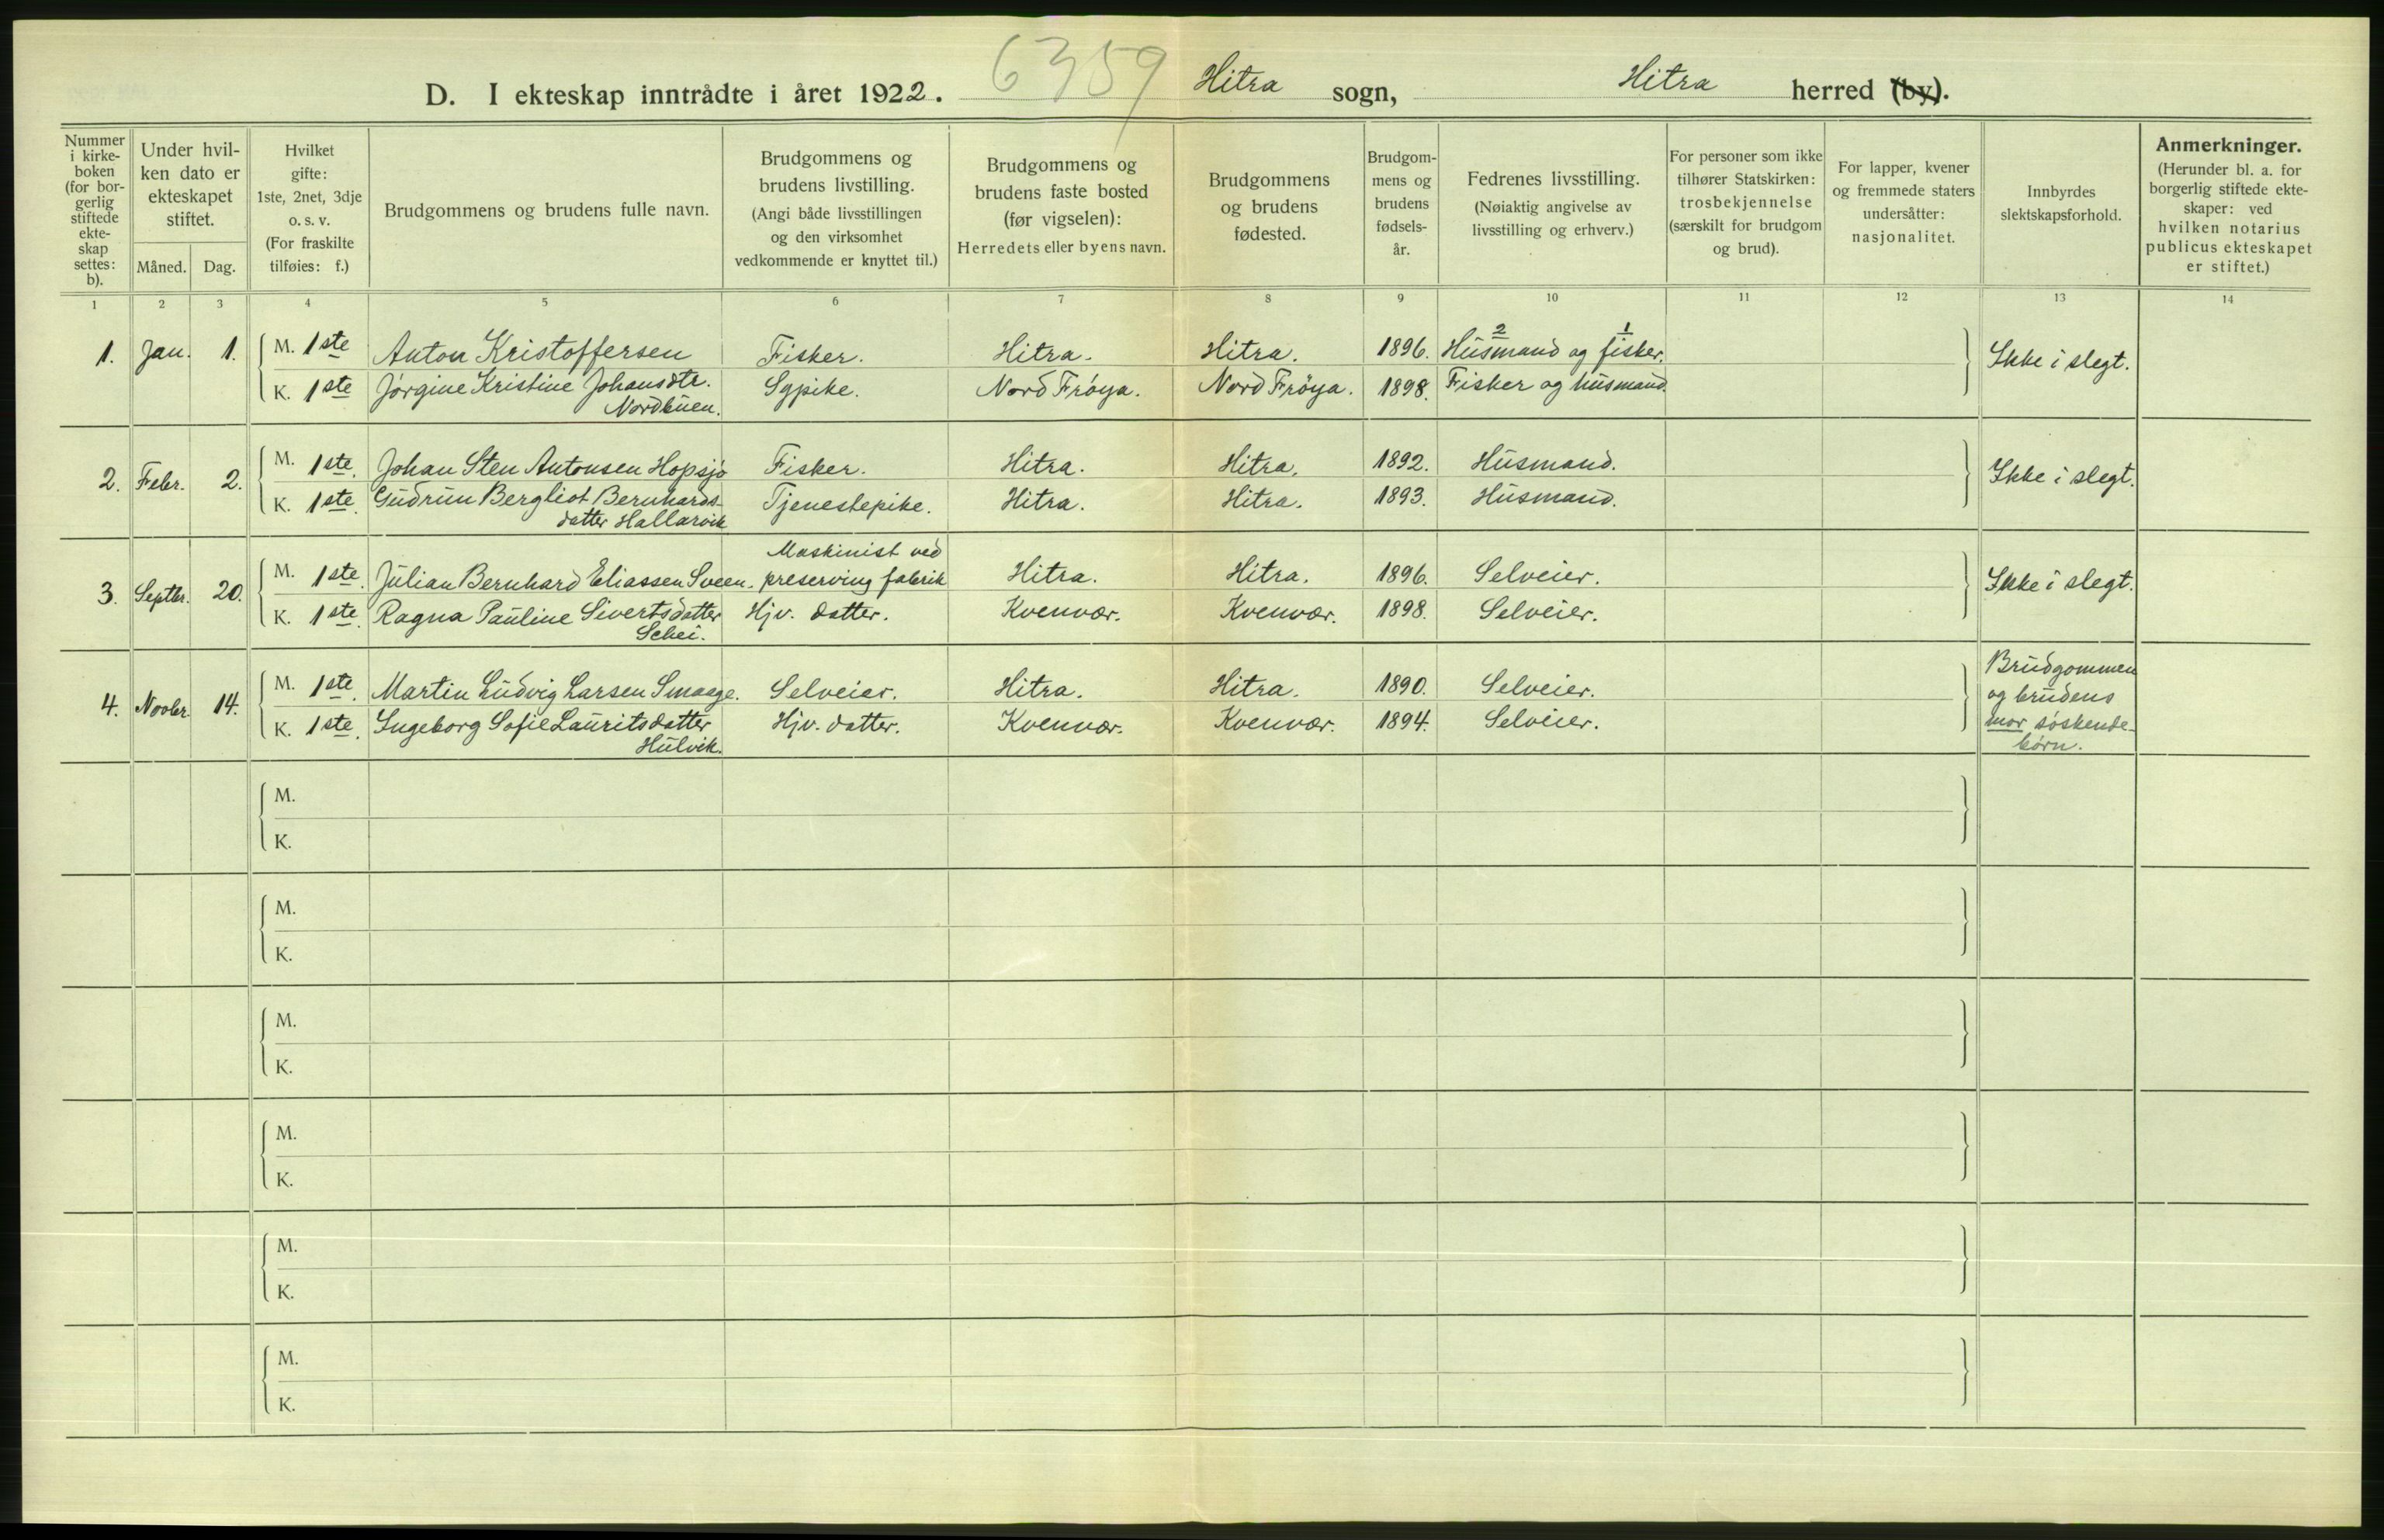 6359
D. I ekteskap inntrådte i året 1922. Hitra sogn, Hitra herred (by).
Nummer i kirke-boken (for bor-gerlig stiftede ekte-skap settes: b).
Under hvil-ken dato er ekteskapet stiftet.
Måned. Dag.
Hvilket gifte: 1ste, 2net, 3dje o. s. v. (For fraskilte tilføies: f.)
Brudgommens og brudens fulle navn.
Brudgommens og brudens livstilling. (Angi både livsstillingen og den virksomhet vedkommende er knyttet til.)
Brudgommens og brudens faste bosted (før vigselen): Herredets eller byens navn.
Brudgommens og brudens fødested.
Brudgom-mens og brudens fødsels-år.
Fedrenes livsstilling. (Nøiaktig angivelse av livsstilling og erhverv.)
For personer som ikke tilhører Statskirken: trosbekjennelse (særskilt for brudgom og brud).
For lapper, kvener og fremmede staters undersåtter: nasjonalitet.
Innbyrdes slektskapsforhold.
Anmerkninger. (Herunder bl. a. for borgerlig stiftede ekte-skaper: ved hvilken notarius publicus ekteskapet er stiftet.)
1 2 3 4 5 6 7 8 9 10 11 12 13 14
2 1
1. Jan. 1. M. 1ste Anton Kristoffersen Fisker. Hitra. Hitra. 1896. Husmand og fisker. Ikke i slegt.
K. 1ste Jörgine Kristine Johansdtr. Sypike. Nord Fröya. Nord Fröya. 1898. Fisker og husmand.
Nordbuen.
2. Febr. 2. M. 1ste. Johan Sten Antonsen Hopsjö Fisker. Hitra. Hitra. 1892. Husmand. Ikke i slegt.
K. 1ste. Gudrun Bergliot Bernhards- Tjenestepike. Hitra. Hitra. 1893. Husmand.
datter Hallarvik
Maskinist ved
3. Septbr. 20. M. 1ste. Julian Bernhard Eliassen Sveen. preserving fabrik Hitra. Hitra. 1896. Selveier. Ikke i slegt.
K. 1ste. Ragna Pauline Sivertsdatter Hjv. datter. Kvenvær. Kvenvær. 1898. Selveier.
Schei.
4. Novbr. 14. M. 1ste. Martin Ludvig Larsen Smaage. Selveier. Hitra. Hitra. 1890. Selveier. Brudgommen
og brudens
K. 1ste. Ingeborg Sofie Lauritsdatter Hjv. datter. Kvenvær. Kvenvær. 1894. Selveier. mor söskende-
Hulvik. börn.
M.
K.
M.
K.
M.
K.
M.
K.
M.
K.
M.
K.